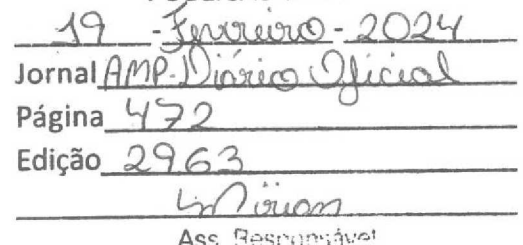 19 - Fevereiro - 2024
Jornal AMP-Diário Oficial
Página 472
Edição 2963
Mirian
Ass. Responsável